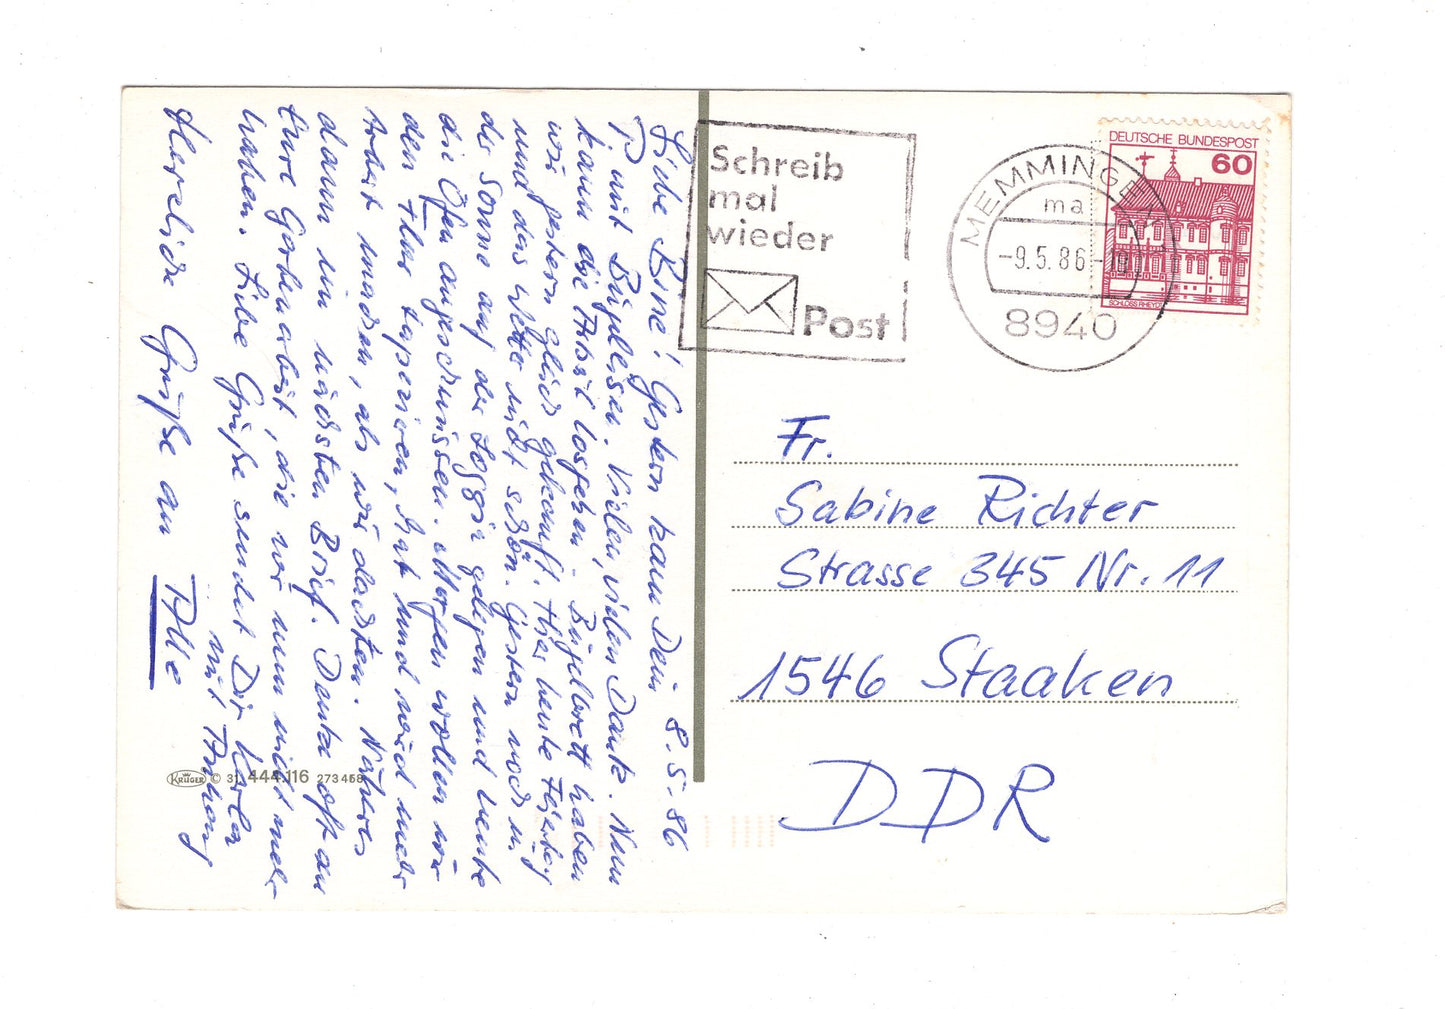 8.5.86
Liebe Bine! Gestern kam Dein
P. mit Bügeleisen. Vielen, vielen Dank. Nun
kann die Arbeit losgehen. Bügelbrett haben
wir gestern gleich gekauft. Hier heute Feiertag
und das Wetter ist schön. Gestern noch in
der Sonne auf der Loggia gelegen und heute
die Öfen angeschmissen. Morgen wollen wir
den Flur tapezieren, hat und wird mehr
Arbeit machen, als wir dachten. Näheres
dann im nächsten Brief. Denke oft an
Eure Gartenarbeit, die wir nun nicht mehr
haben. Liebe Grüße sendet Dir Karla
mit Anhang
Herzliche Grüße an Alle
KRÜGER © 31. 444.116 273 468
Schreib
mal
wieder
Post
MEMMINGEN
ma
-9.5.86-
8940
DEUTSCHE BUNDESPOST
60
SCHLOSS RHEYDT
Fr.
Sabine Richter
Strasse 345 Nr. 11
1546 Staaken
DDR